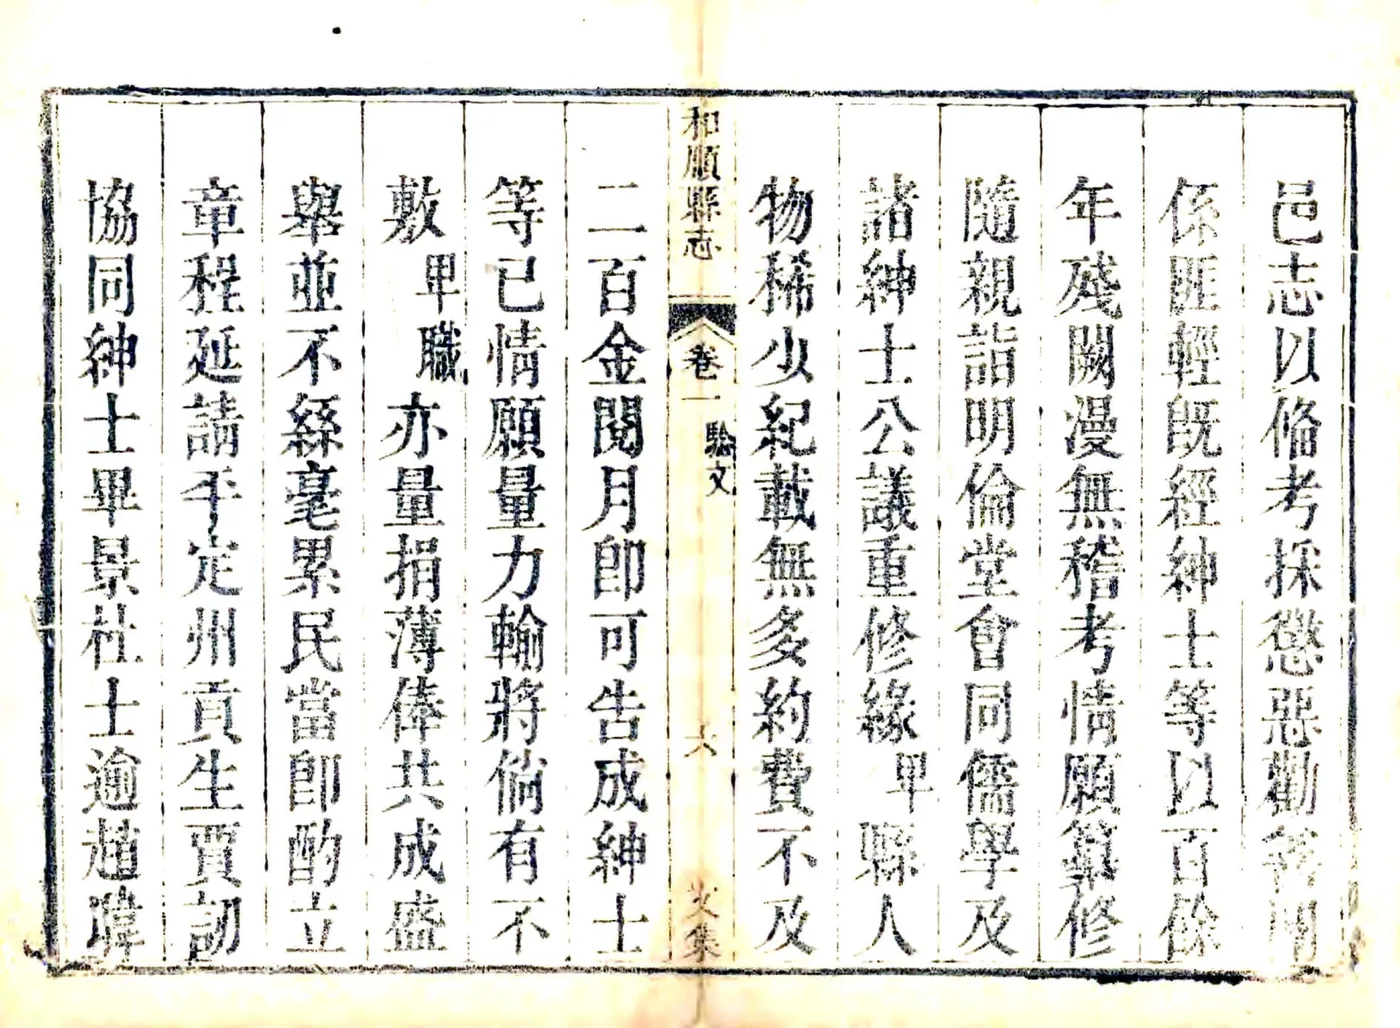 邑志以俻考採懲惡勸善關
係匪輕旣經紳士等以百餘
年殘闕漫無稽考情願纂修
隨親詣明倫堂會同儒學及
諸紳士公議重修緣卑縣人
物稀少紀載無多約費不及
和順縣志
卷一
驗文
六
二百金閱月卽可告成紳士
等已情願量力輸將倘有不
敷卑職亦量捐薄俸共成盛
舉並不絲毫累民當卽酌立
章程延請平定州貢生賈訒
協同紳士畢景杜士逾趙瑋